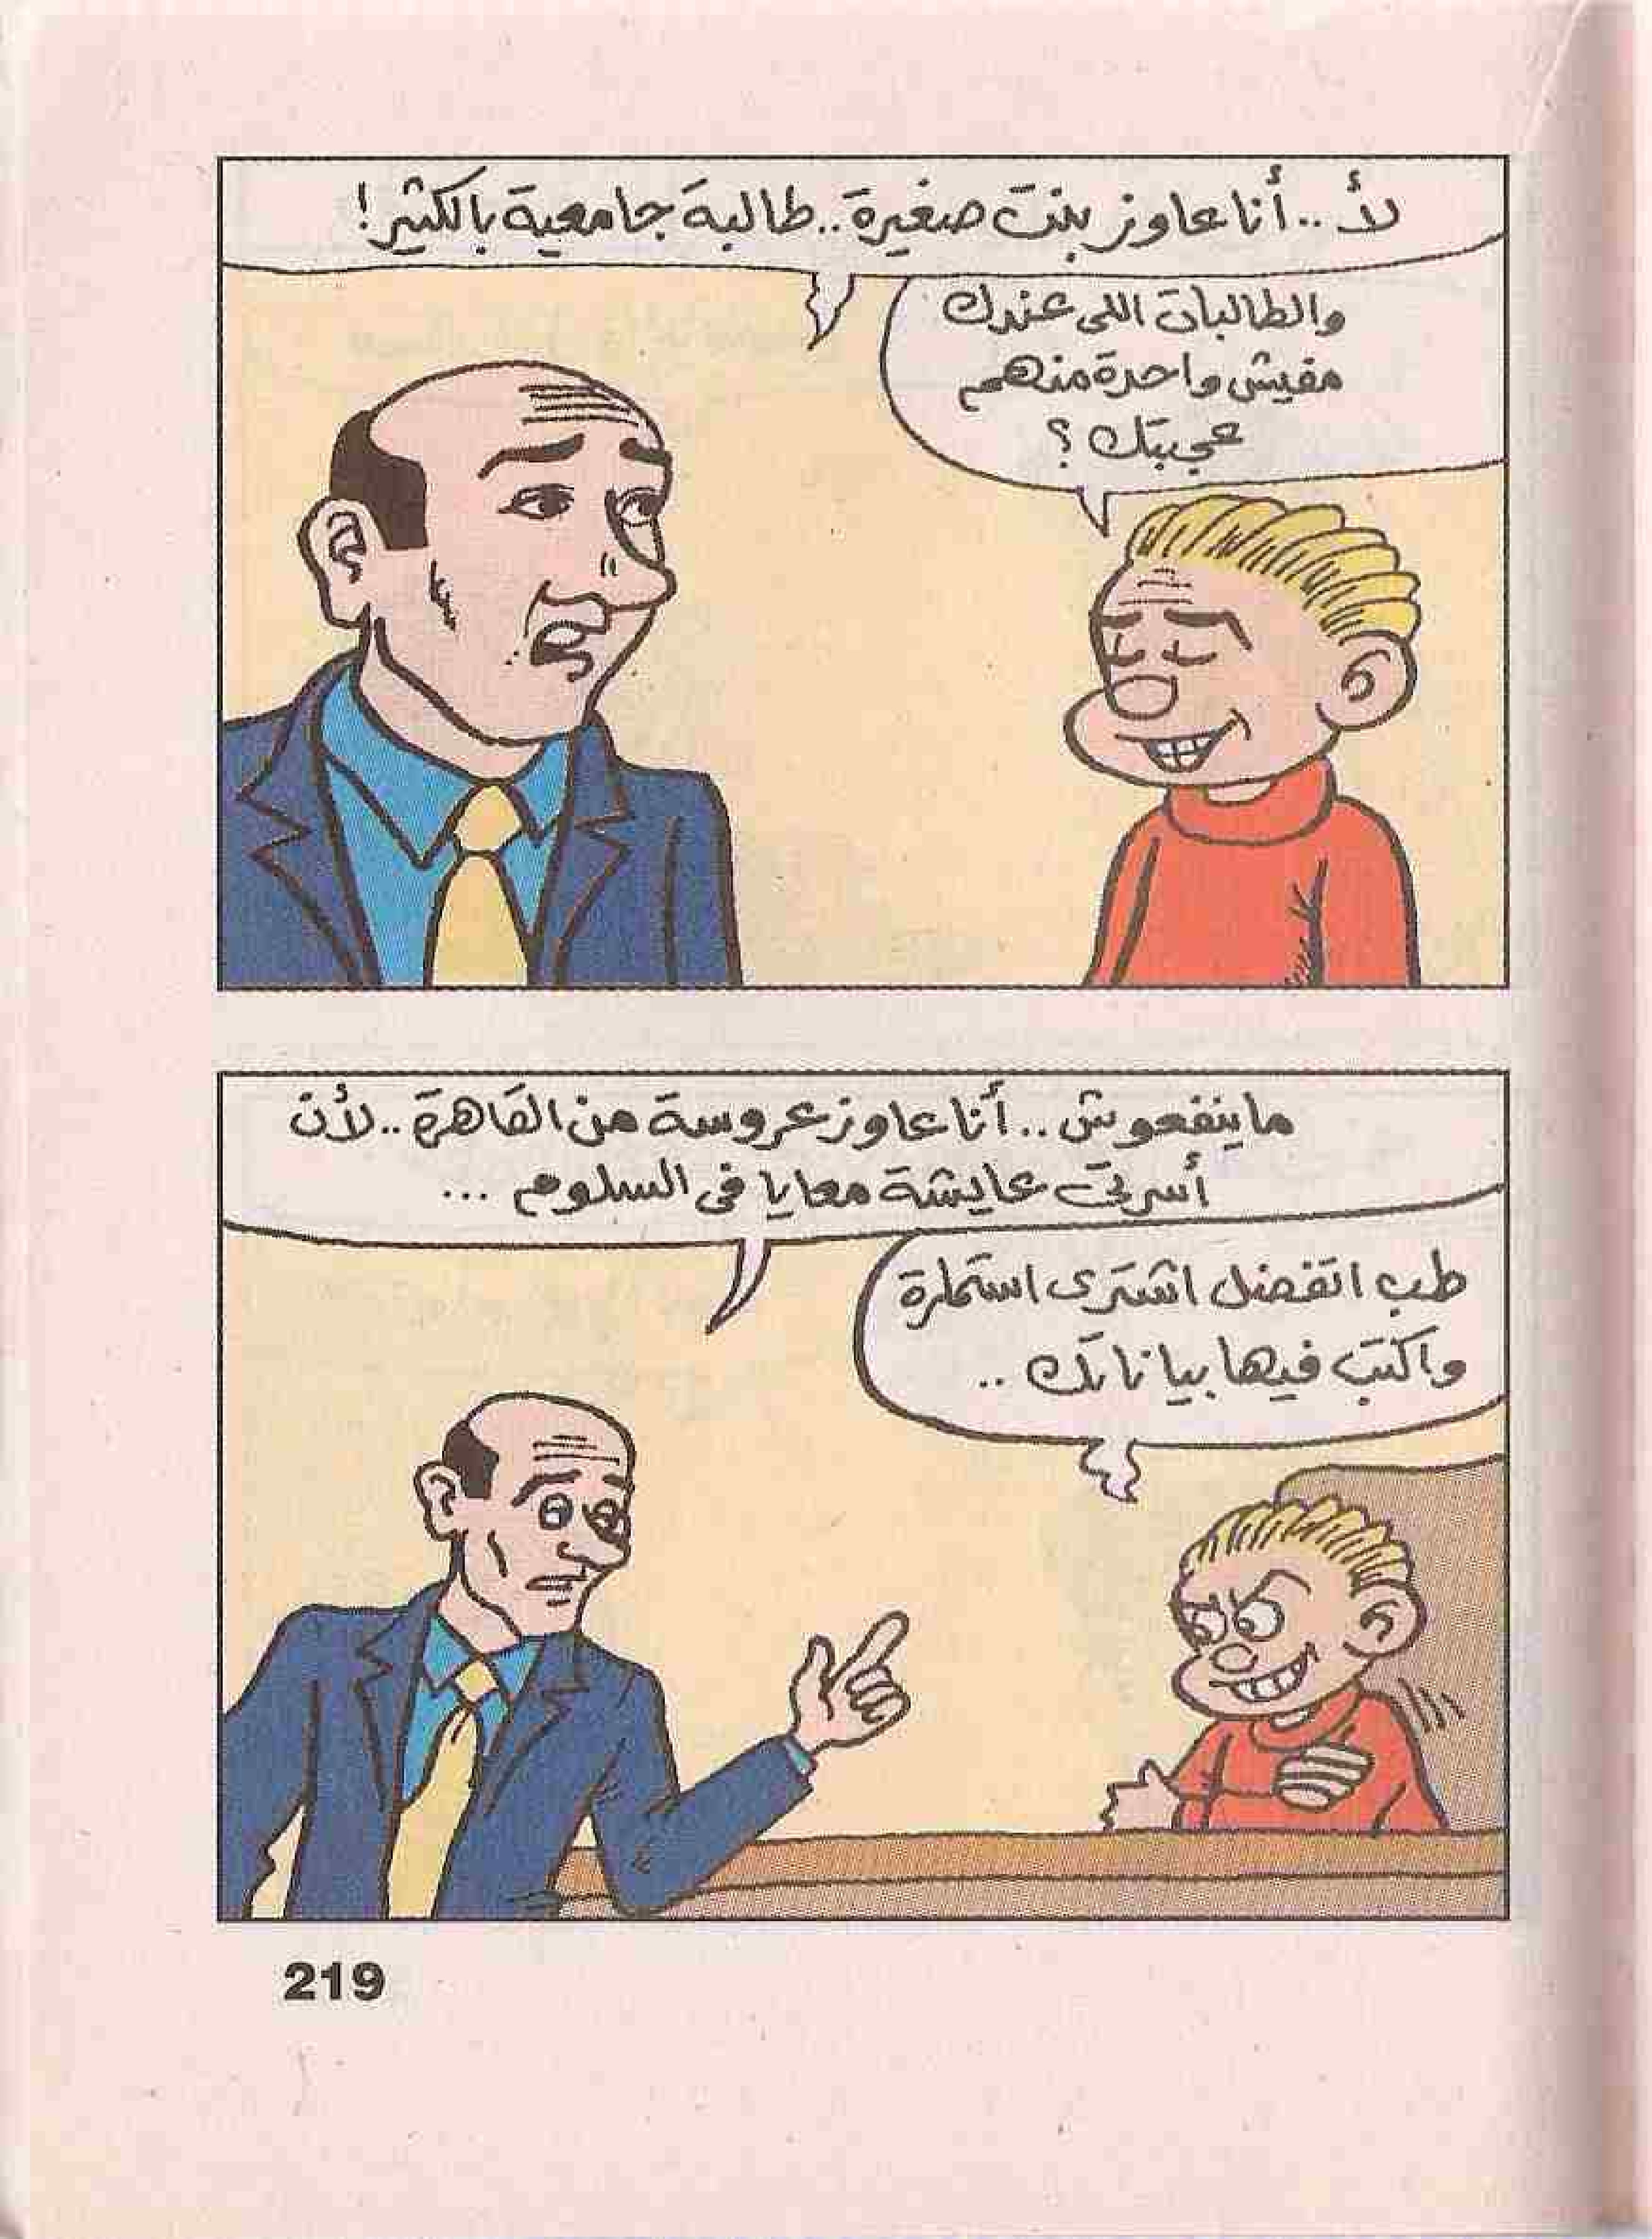 لأ .. أنا عاوز بنت صغيرة .. طالبة جامعية بالكتير !
والطالبات اللى عندك
مفيش واحدة منهم
عجبتك ؟
ماينفعوش .. أنا عاوز عروسة من القاهرة .. لأن
أسرتى عايشة معايا فى السلوم ...
طب اتفضل اشترى استمارة
واكتب فيها بياناتك ..
219